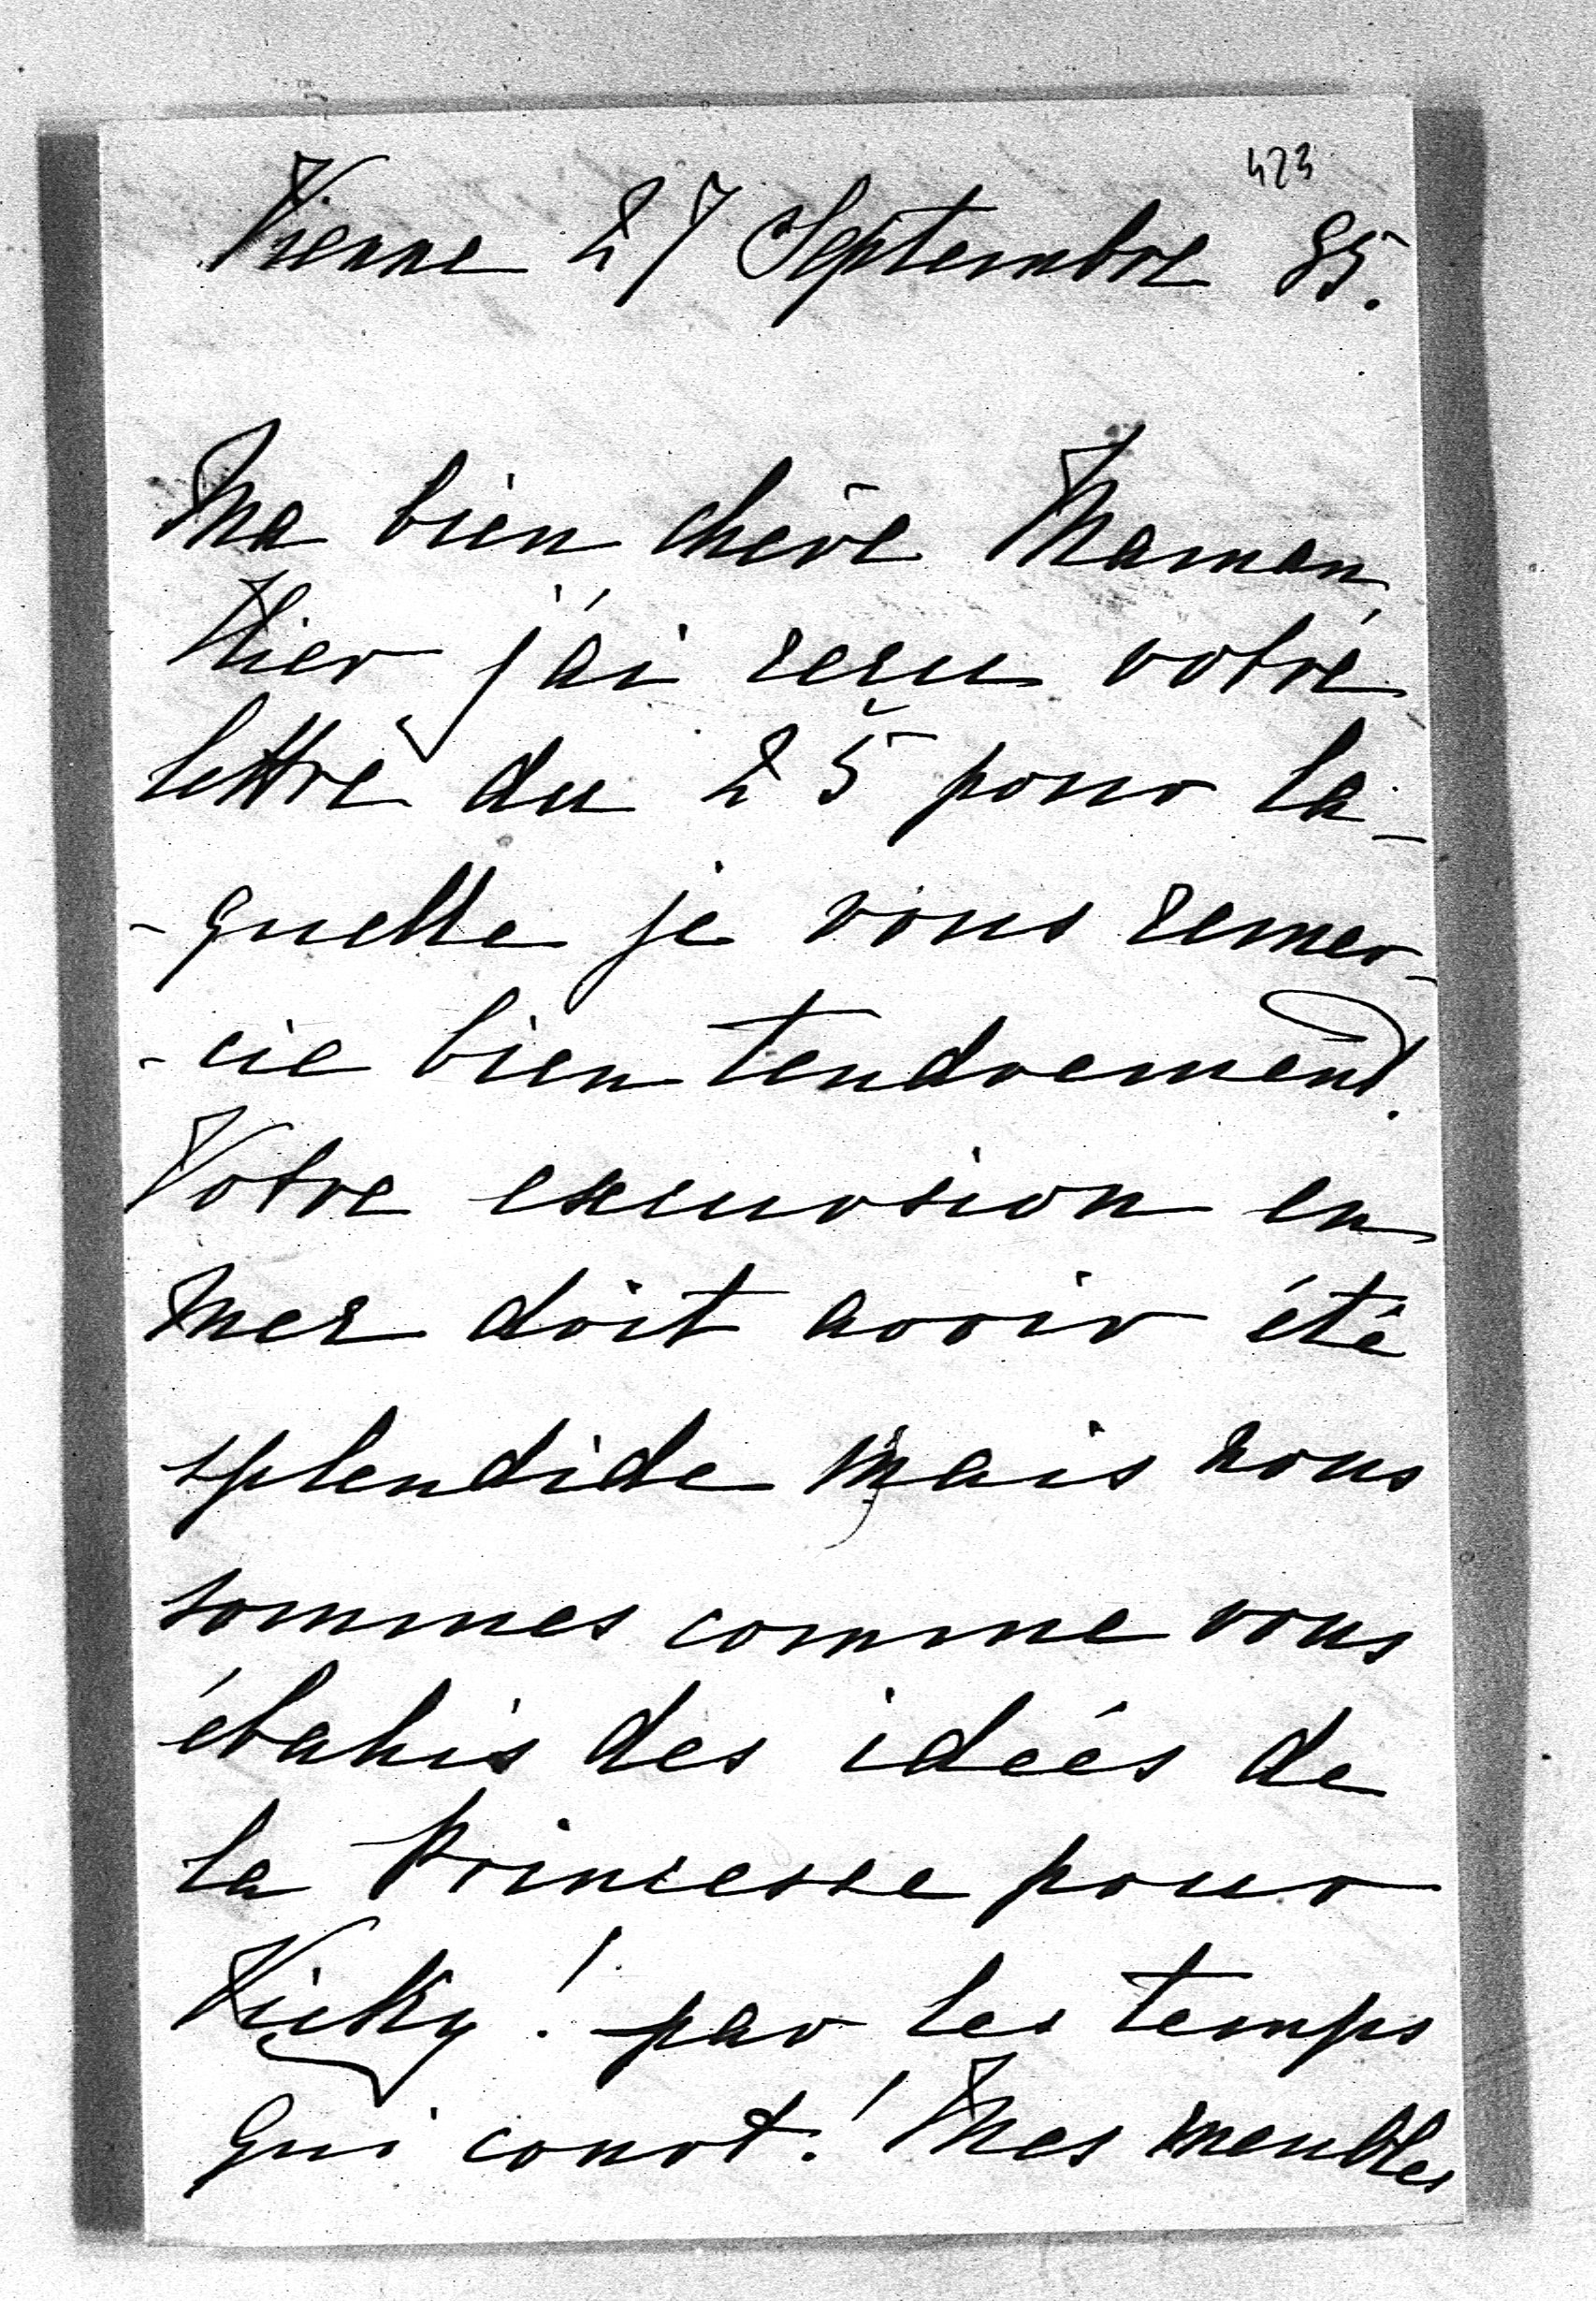 423
Vienne 27 Septembre 85.
Ma bien chère Maman,
Hier j'ai reçu votre
lettre du 25 pour la-
-quelle je vous remer-
-cie bien tendrement.
Votre excursion en
mer doit avoir été
splendide mais nous
sommes comme vous
ébahis des idées de
la Princesse pour
Vicky! par les temps
qui court! Mes meubles